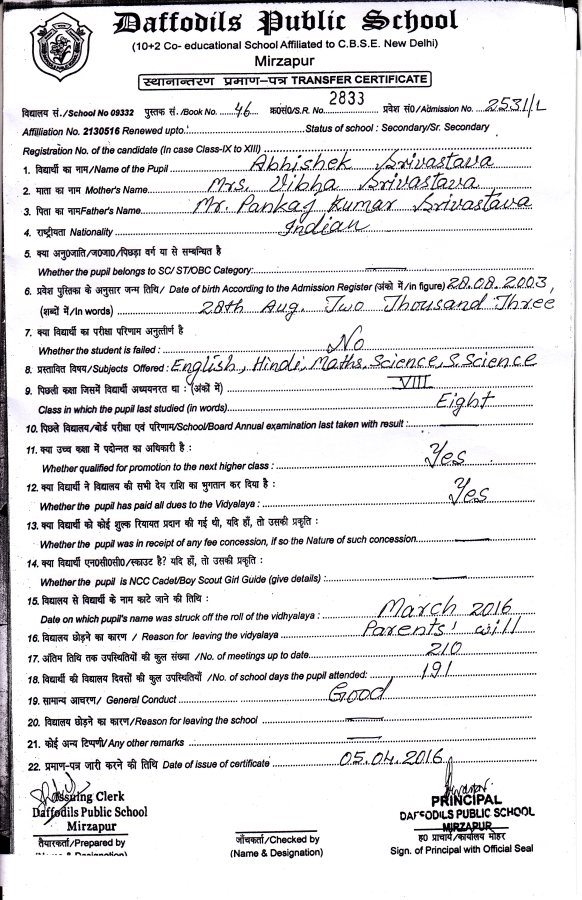 Daffodils Public School
(10+2 Co- educational School Affiliated to C.B.S.E. New Delhi)
Mirzapur
स्थानान्तरण प्रमाण-पत्र TRANSFER CERTIFICATE
विद्यालय सं./School No 09332 पुस्तक सं./Book No. 46 क्र0सं0/S.R. No. 2833 प्रवेश सं0/Admission No. 2531/L
Affiliation No. 2130516 Renewed upto. Status of school : Secondary/Sr. Secondary
Registration No. of the candidate (In case Class-IX to XIII)
1. विद्यार्थी का नाम/Name of the Pupil Abhishek Srivastava
2. माता का नाम Mother's Name Mrs. Vibha Srivastava
3. पिता का नामFather's Name Mr. Pankaj Kumar Srivastava
4. राष्ट्रीयता Nationality Indian
5. क्या अनु0जाति/ज0जा0/पिछड़ा वर्ग या से सम्बन्धित है
Whether the pupil belongs to SC/ ST/OBC Category:
6. प्रवेश पुस्तिका के अनुसार जन्म तिथि/ Date of birth According to the Admission Register (अंको में/in figure) 28.08.2003,
(शब्दों में/In words) 28th Aug. Two Thousand Three
7. क्या विद्यार्थी का परीक्षा परिणाम अनुतीर्ण है
Whether the student is failed : No
8. प्रस्तावित विषय/Subjects Offered : English, Hindi, Maths, Science, S. Science
9. पिछली कक्षा जिसमें विद्यार्थी अध्ययनरत था : (अंकों में) VIII
Class in which the pupil last studied (in words) Eight
10. पिछले विद्यालय/बोर्ड परीक्षा एवं परिणाम/School/Board Annual examination last taken with result :
11. क्या उच्च कक्षा में पदोन्नत का अधिकारी है :
Whether qualified for promotion to the next higher class : Yes
12. क्या विद्यार्थी ने विद्यालय की सभी देय राशि का भुगतान कर दिया है :
Whether the pupil has paid all dues to the Vidyalaya : Yes
13. क्या विद्यार्थी को कोई शुल्क रियायत प्रदान की गई थी, यदि हाँ, तो उसकी प्रकृति :
Whether the pupil was in receipt of any fee concession, if so the Nature of such concession
14. क्या विद्यार्थी एन0सी0सी0/स्काउट है? यदि हाँ, तो उसकी प्रकृति :
Whether the pupil is NCC Cadet/Boy Scout Girl Guide (give details) :
15. विद्यालय से विद्यार्थी के नाम काटे जाने की तिथि :
Date on which pupil's name was struck off the roll of the vidhyalaya : March 2016
16. विद्यालय छोड़ने का कारण / Reason for leaving the vidyalaya Parents' will
17. अंतिम तिथि तक उपस्थितियों की कुल संख्या /No. of meetings up to date 210
18. विद्यार्थी की विद्यालय दिवसों की कुल उपस्थितियाँ /No. of school days the pupil attended: 191
19. सामान्य आचरण/ General Conduct Good
20. विद्यालय छोड़ने का कारण/Reason for leaving the school
21. कोई अन्य टिप्पणी/Any other remarks
22. प्रमाण-पत्र जारी करने की तिथि Date of issue of certificate 05.04.2016
Issuing Clerk
Daffodils Public School
Mirzapur
तैयारकर्ता/Prepared by
जाँचकर्ता/Checked by
(Name & Designation)
PRINCIPAL
DAFFODILS PUBLIC SCHOOL
MIRZAPUR
ह0 प्राचार्य/कार्यालय मोहर
Sign. of Principal with Official Seal